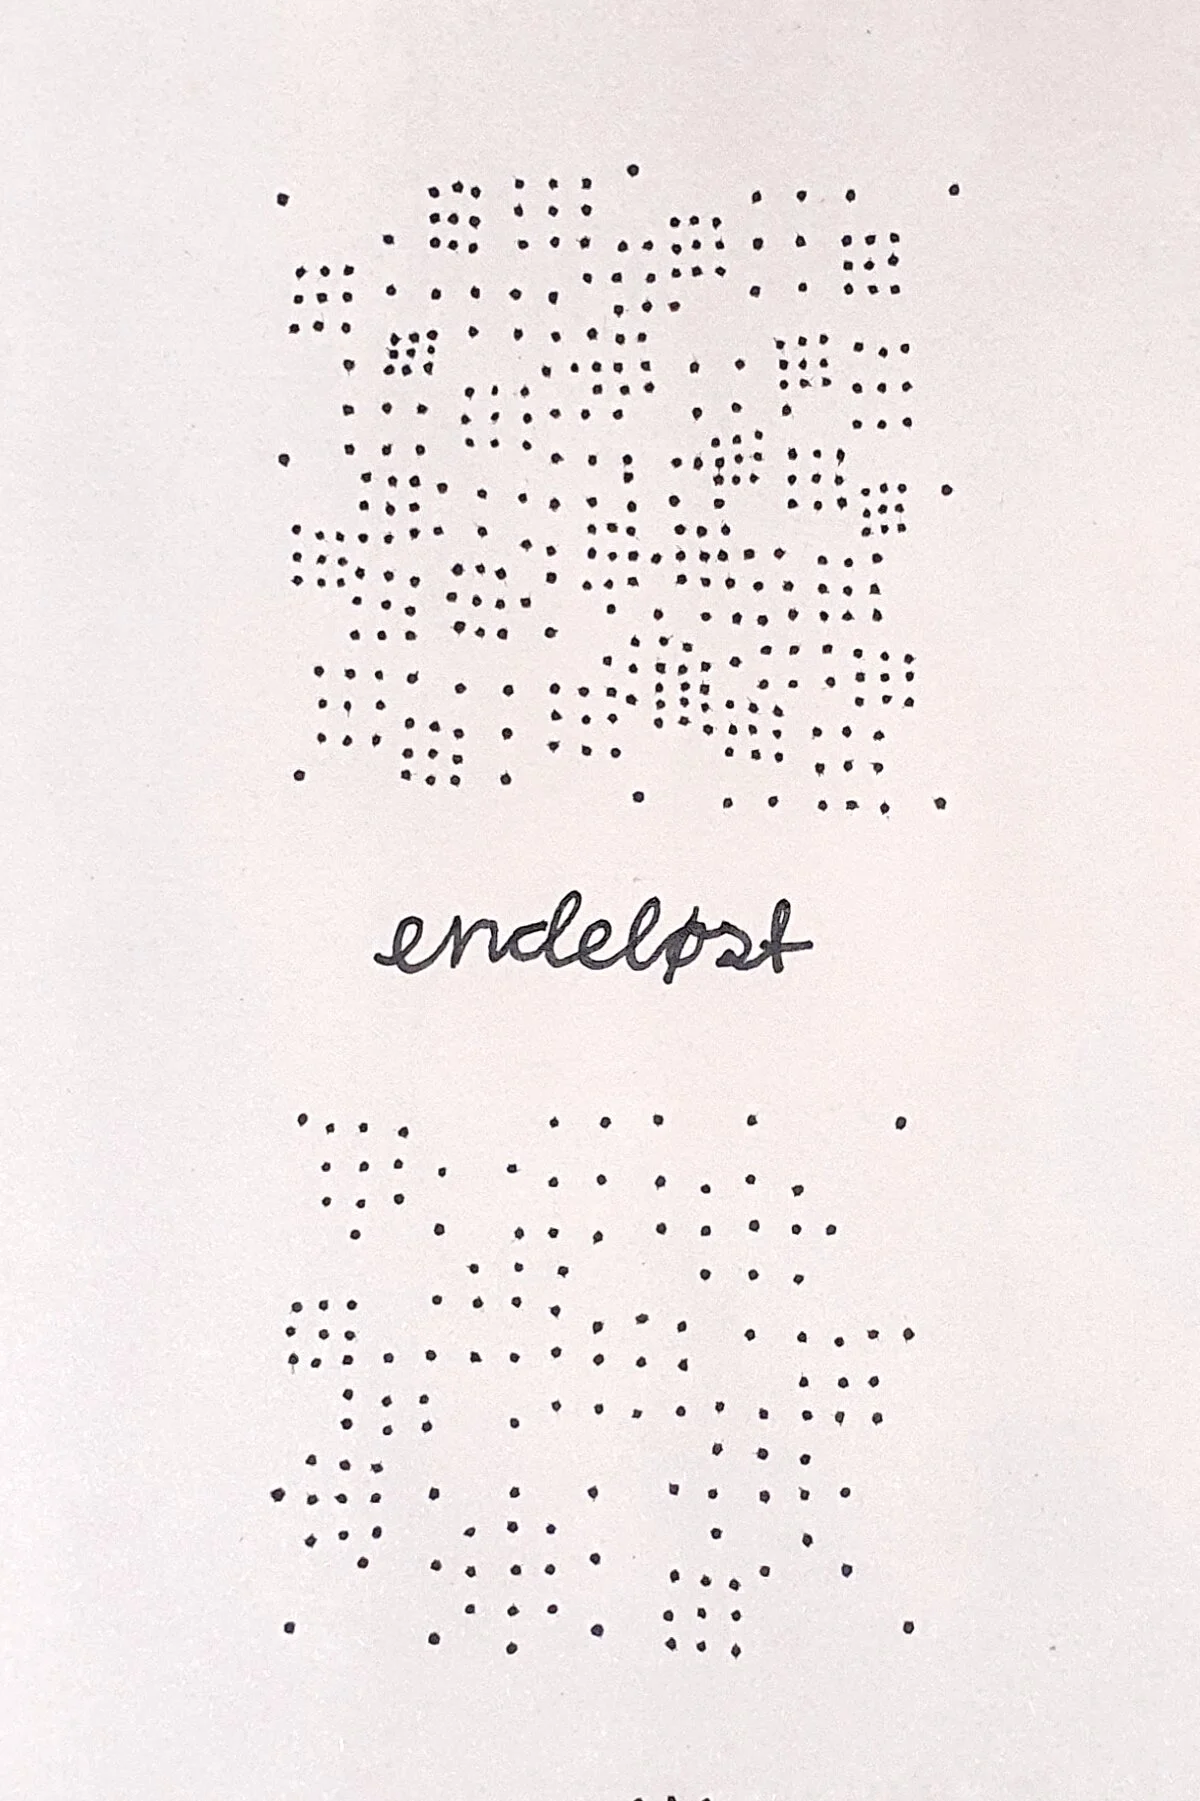 endeløst